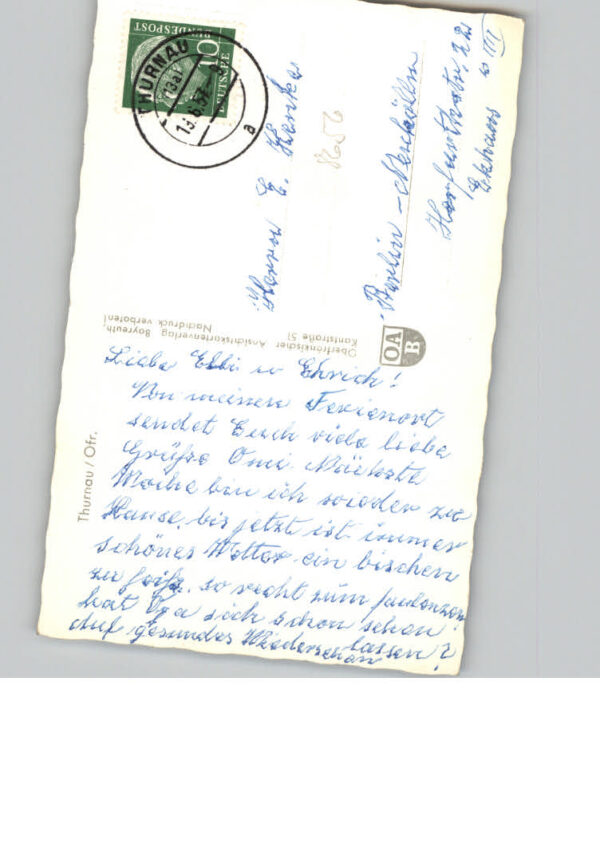 BUNDESPOST
10
DEUTSCHE
THURNAU
(13a)
a
Herrn E.
Berlin – Neukölln
22
III
8656
Oberfränkischer Ansichtskartenverlag Bayreuth,
Kantstraße 51
Nachdruck verboten!
OA
B
Thurnau / Ofr.
Liebe Elli u Ehrich!
Von meinem Ferienort
sendet Euch viele liebe
Grüße Omi. Nächste
Woche bin ich wieder zu
Hause, bis jetzt ist immer
schönes Wetter ein bischen
zu heiß, so recht zum faulenzen.
hat sich schon sehen
lassen?
Auf gesundes Wiedersehen